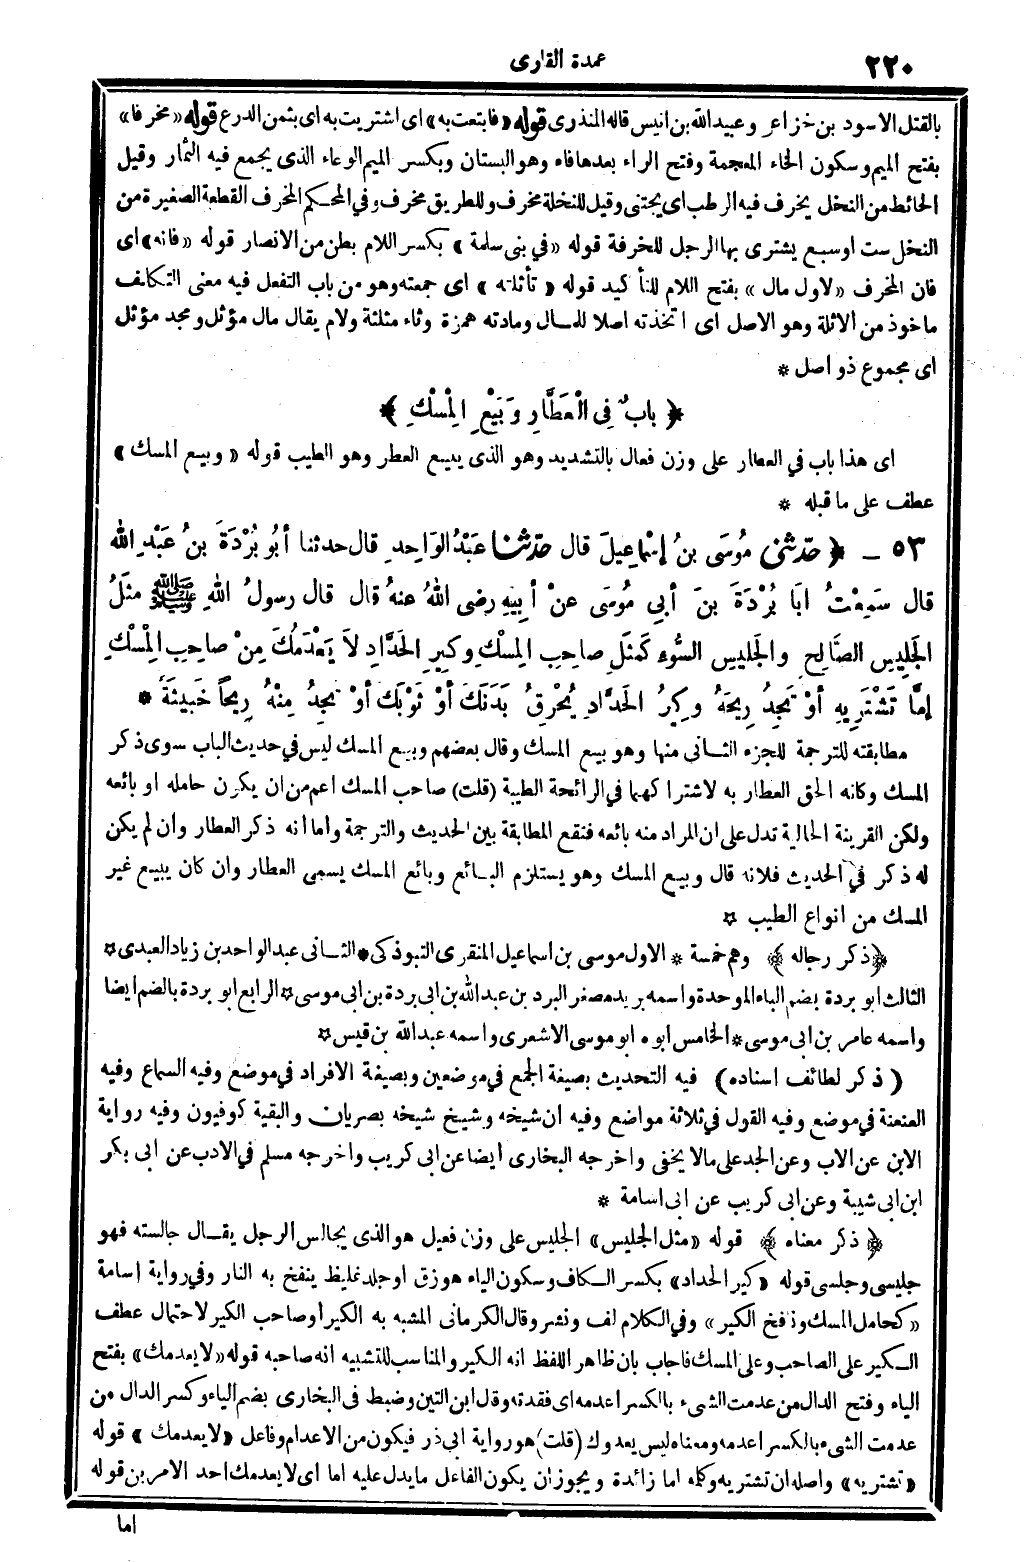 ٢٢٠
عمدة القارى
بالقتل الاسود بن خزاعى وعبيد الله بن انيس قاله المنذرى قوله «فابتعت به» اى اشتريت به اى بثمن الدرع قوله «مخرفا»
بفتح الميم وسكون الخاء المعجمة وفتح الراء بعدها فاء وهو البستان وبكسر الميم الوعاء الذى يجمع فيه الثمار وقيل
الحائط من النخل يخرف فيه الرطب اى يجتنى وقيل للنخلة مخرف وللطريق مخرف وفي المحكم المخرف القطعة الصغيرة من
النخل ست او سبع يشترى بها الرجل للخرفة قوله «في بنى سلمة» بكسر اللام بطن من الانصار قوله «فانه» اى
فان المخرف «لاول مال» بفتح اللام للتأكيد قوله «تأثلته» اى جمعته وهو من باب التفعل فيه معنى التكلف
ماخوذ من الاثلة وهو الاصل اى اتخذته اصلا للمال ومادته همزة وثاء مثلثة ولام يقال مال مؤثل ومجد مؤثل
اى مجموع ذو اصل *
﴿ بابٌ فِي الْعَطَّارِ وَبَيْعِ الْمِسْكِ ﴾
اى هذا باب في العطار على وزن فعال بالتشديد وهو الذى يبيع العطر وهو الطيب قوله «وبيع المسك»
عطف على ما قبله *
٥٣ – ﴿ حدّثني مُوسَى بنُ إسْمَاعِيلَ قال حدّثنا عَبْدُ الوَاحِدِ قال حدثنا أبُو بُرْدَةَ بنُ عَبْدِ الله
قال سَمِعْتُ ابَا بُرْدَةَ بنَ أبي مُوسَى عنْ أبِيهِ رضى اللهُ عنهُ قال قال رسولُ اللهِ ﷺ مثَلُ
الجَلِيسِ الصَّالِحِ والجَلِيسِ السُّوءِ كَمثَلِ صاحِبِ المِسْكِ وكِيرِ الحَدَّادِ لاَ يَعْدَمُكَ مِنْ صاحِبِ المِسْكِ
إمَّا تَشْتَرِيهِ أوْ تَجِدُ رِيحَهُ وكِيرُ الحَدَّادِ يُحْرِقُ بَدَنَكَ أوْ ثَوْبَكَ أوْ تَجِدُ مِنْهُ رِيحاً خَبِيثَةً *
مطابقته للترجمة للجزء الثانى منها وهو بيع المسك وقال بعضهم وبيع المسك ليس في حديث الباب سوى ذكر
المسك وكانه الحق العطار به لاشتراكهما في الرائحة الطيبة (قلت) صاحب المسك اعم من ان يكون حامله او بائعه
ولكن القرينة الحالية تدل على ان المراد منه بائعه فتقع المطابقة بين الحديث والترجمة واما انه ذكر العطار وان لم يكن
له ذكر في الحديث فلانه قال وبيع المسك وهو يستلزم البائع وبائع المسك يسمى العطار وان كان يبيع غير
المسك من انواع الطيب *
﴿ذكر رجاله﴾ وهم خمسة * الاول موسى بن اسماعيل المنقرى التبوذكى * الثانى عبد الواحد بن زياد العبدى *
الثالث ابو بردة بضم الباء الموحدة واسمه بريد مصغر البرد بن عبد الله بن ابى بردة بن ابى موسى * الرابع ابو بردة بالضم ايضا
واسمه عامر بن ابى موسى * الخامس ابوه ابو موسى الاشعرى واسمه عبد الله بن قيس *
( ذكر لطائف اسناده ) فيه التحديث بصيغة الجمع في موضعين وبصيغة الافراد في موضع وفيه السماع وفيه
العنعنة في موضع وفيه القول في ثلاثة مواضع وفيه ان شيخه وشيخ شيخه بصريان والبقية كوفيون وفيه رواية
الابن عن الاب وعن الجد على مالا يخفى واخرجه البخارى أيضا عن ابى كريب واخرجه مسلم في الادب عن ابى بكر
ابن ابى شيبة وعن ابى كريب عن ابى اسامة *
﴿ ذكر معناه ﴾ قوله «مثل الجليس» الجليس على وزن فعيل هو الذى يجالس الرجل يقال جالسته فهو
جليسى وجلسى قوله «كير الحداد» بكسر الكاف وسكون الياء هو زق او جلد غليظ ينفخ به النار وفي رواية اسامة
«كحامل المسك ونافخ الكير» وفي الكلام لف ونشر وقال الكرمانى المشبه به الكير أو صاحب الكير لاحتمال عطف
الكير على الصاحب وعلى المسك فاجاب بان ظاهر اللفظ انه الكير والمناسب للتشبيه انه صاحبه قوله «لا يعدمك» بفتح
الياء وفتح الدال من عدمت الشىء بالكسر اعدمه اى فقدته وقال ابن التين وضبط فى البخارى بضم الياء وكسر الدال من
عدمت الشىء بالكسر اعدمه ومعناه ليس يعدوك (قلت) هو رواية ابى ذر فيكون من الاعدام وفاعل «لا يعدمك» قوله
«تشتريه» واصله ان تشتريه وكلمة اما زائدة ويجوز ان يكون الفاعل ما يدل عليه اما اى لا يعدمك احد الامرين قوله
اما